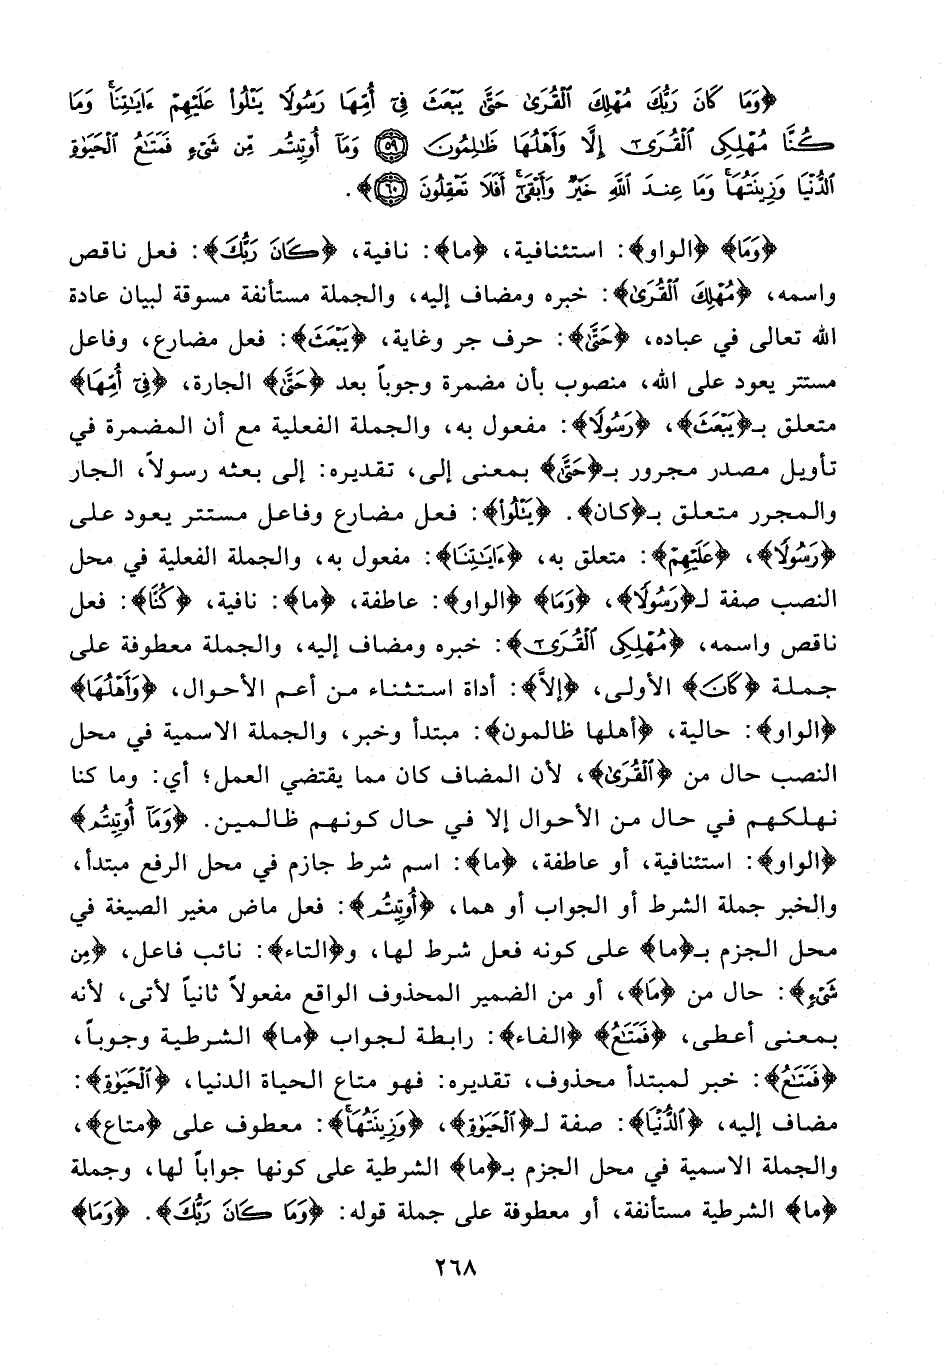 ﴿وَمَا كَانَ رَبُّكَ مُهْلِكَ ٱلْقُرَىٰ حَتَّىٰ يَبْعَثَ فِىٓ أُمِّهَا رَسُولًا يَتْلُوا۟ عَلَيْهِمْ ءَايَـٰتِنَا ۚ وَمَا
كُنَّا مُهْلِكِى ٱلْقُرَىٰٓ إِلَّا وَأَهْلُهَا ظَـٰلِمُونَ ٥٩ وَمَآ أُوتِيتُم مِّن شَىْءٍ فَمَتَـٰعُ ٱلْحَيَوٰةِ
ٱلدُّنْيَا وَزِينَتُهَا ۚ وَمَا عِندَ ٱللَّهِ خَيْرٌ وَأَبْقَىٰٓ ۚ أَفَلَا تَعْقِلُونَ ٦٠﴾.
﴿وَمَا﴾ ﴿الواو﴾: استئنافية، ﴿ما﴾: نافية، ﴿كَانَ رَبُّكَ﴾: فعل ناقص
واسمه، ﴿مُهْلِكَ ٱلْقُرَىٰ﴾: خبره ومضاف إليه، والجملة مستأنفة مسوقة لبيان عادة
الله تعالى في عباده، ﴿حَتَّىٰ﴾: حرف جر وغاية، ﴿يَبْعَثَ﴾: فعل مضارع، وفاعل
مستتر يعود على الله، منصوب بأن مضمرة وجوباً بعد ﴿حَتَّىٰ﴾ الجارة، ﴿فِىٓ أُمِّهَا﴾
متعلق بـ﴿يَبْعَثَ﴾، ﴿رَسُولًا﴾: مفعول به، والجملة الفعلية مع أن المضمرة في
تأويل مصدر مجرور بـ﴿حَتَّىٰ﴾ بمعنى إلى، تقديره: إلى بعثه رسولاً، الجار
والمجرر متعلق بـ﴿كان﴾. ﴿يَتْلُوا۟﴾: فعل مضارع وفاعل مستتر يعود على
﴿رَسُولًا﴾، ﴿عَلَيْهِمْ﴾: متعلق به، ﴿ءَايَـٰتِنَا﴾: مفعول به، والجملة الفعلية في محل
النصب صفة لـ﴿رَسُولًا﴾، ﴿وَمَا﴾ ﴿الواو﴾: عاطفة، ﴿ما﴾: نافية، ﴿كُنَّا﴾: فعل
ناقص واسمه، ﴿مُهْلِكِى ٱلْقُرَىٰٓ﴾: خبره ومضاف إليه، والجملة معطوفة على
جملة ﴿كَانَ﴾ الأولى، ﴿إلاَّ﴾: أداة استثناء من أعم الأحوال، ﴿وَأَهْلُهَا﴾
﴿الواو﴾: حالية، ﴿أهلها ظالمون﴾: مبتدأ وخبر، والجملة الاسمية في محل
النصب حال من ﴿ٱلْقُرَىٰ﴾، لأن المضاف كان مما يقتضي العمل؛ أي: وما كنا
نهلكهم في حال من الأحوال إلا في حال كونهم ظالمين. ﴿وَمَآ أُوتِيتُم﴾
﴿الواو﴾: استئنافية، أو عاطفة، ﴿ما﴾: اسم شرط جازم في محل الرفع مبتدأ،
والخبر جملة الشرط أو الجواب أو هما، ﴿أُوتِيتُم﴾: فعل ماض مغير الصيغة في
محل الجزم بـ﴿ما﴾ على كونه فعل شرط لها، و﴿التاء﴾: نائب فاعل، ﴿مِن
شَىْءٍ﴾: حال من ﴿مَا﴾، أو من الضمير المحذوف الواقع مفعولاً ثانياً لأتى، لأنه
بمعنى أعطى، ﴿فَمَتَـٰعُ﴾ ﴿الفاء﴾: رابطة لجواب ﴿ما﴾ الشرطية وجوباً،
﴿فَمَتَـٰعُ﴾: خبر لمبتدأ محذوف، تقديره: فهو متاع الحياة الدنيا، ﴿ٱلْحَيَوٰةِ﴾:
مضاف إليه، ﴿ٱلدُّنْيَا﴾: صفة لـ﴿ٱلْحَيَوٰةِ﴾، ﴿وَزِينَتُهَا ۚ﴾: معطوف على ﴿متاع﴾،
والجملة الاسمية في محل الجزم بـ﴿ما﴾ الشرطية على كونها جواباً لها، وجملة
﴿ما﴾ الشرطية مستأنفة، أو معطوفة على جملة قوله: ﴿وَمَا كَانَ رَبُّكَ﴾. ﴿وَمَا﴾
٢٦٨